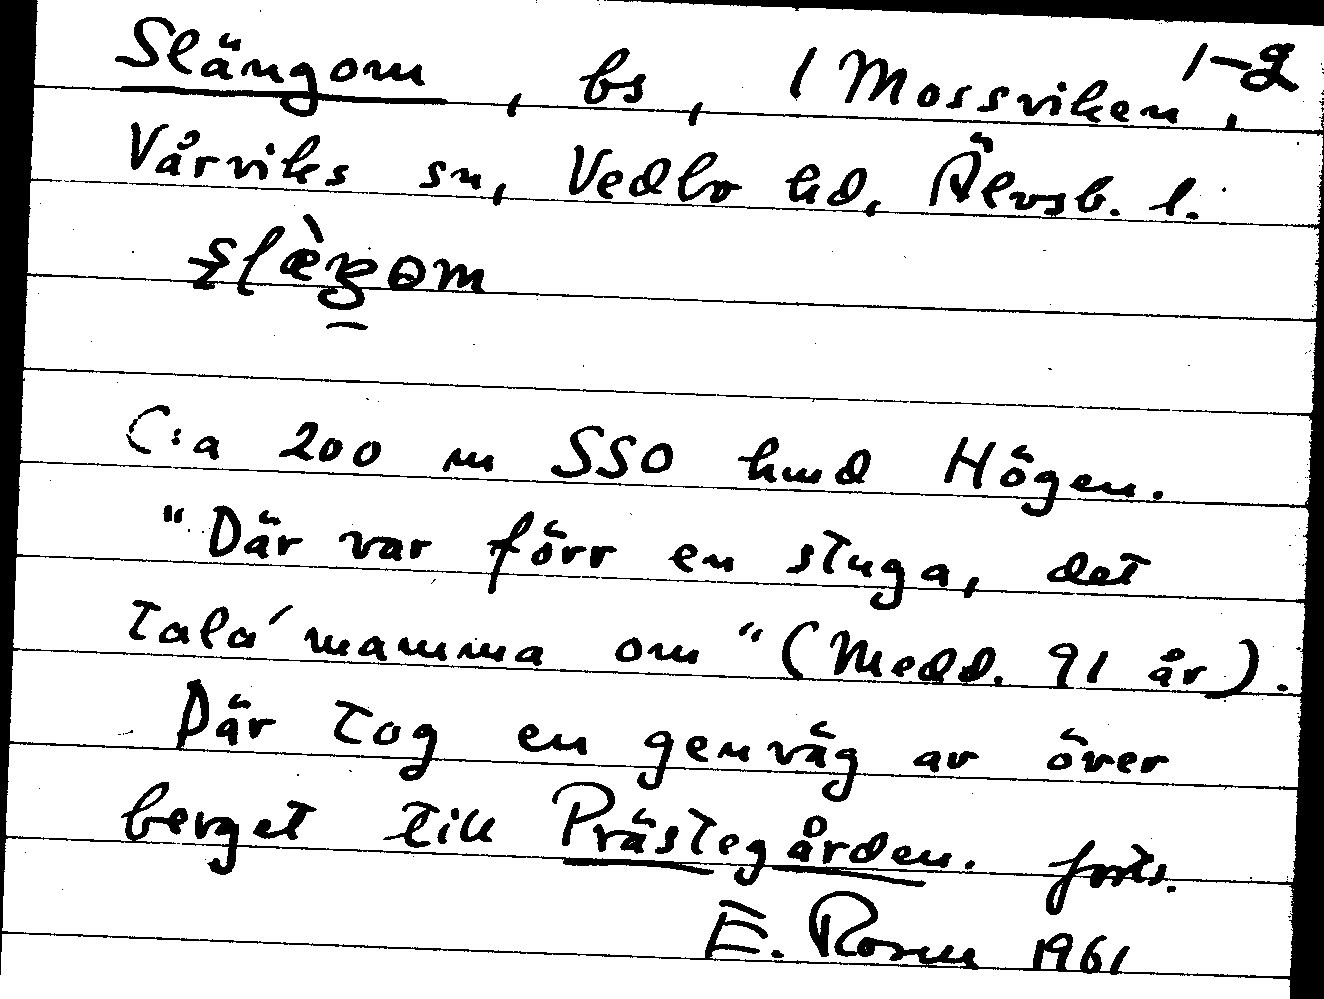 Slängom, bs, 1 Mossviken, 1-2
Vårviks sn, Vedbo hd, Älvsb. l.
C:a 200 m SSO hmd Högen.
"Där var förr en stuga, det
tala' mamma om" (Medd. 91 år).
Där tog en genväg av över
berget till Prästegården. forts.
E. Rosm 1961